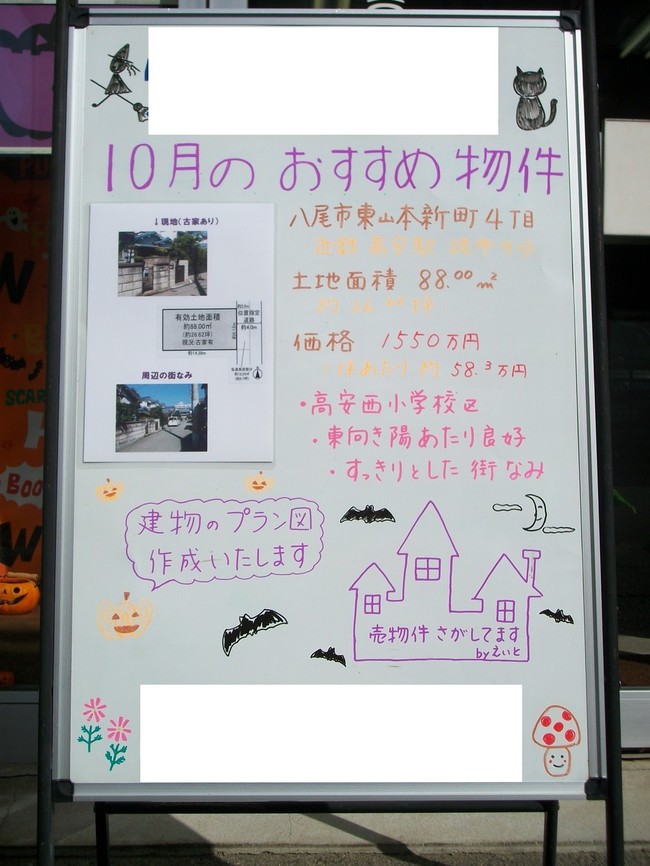 10月の おすすめ 物件
↓現地(古家あり)
有効土地面積
約88.00㎡
(約26.62坪)
現況:古家有
位置指定
道路
約4.0m
周辺の街なみ
八尾市東山本新町4丁目
土地面積 88.00㎡
価格 1550万円
58.3万円
・高安西小学校区
・東向き陽あたり良好
・すっきりとした 街なみ
建物のプラン図
作成いたします
売物件 さがしてます
byえいと
SCAR
BOO